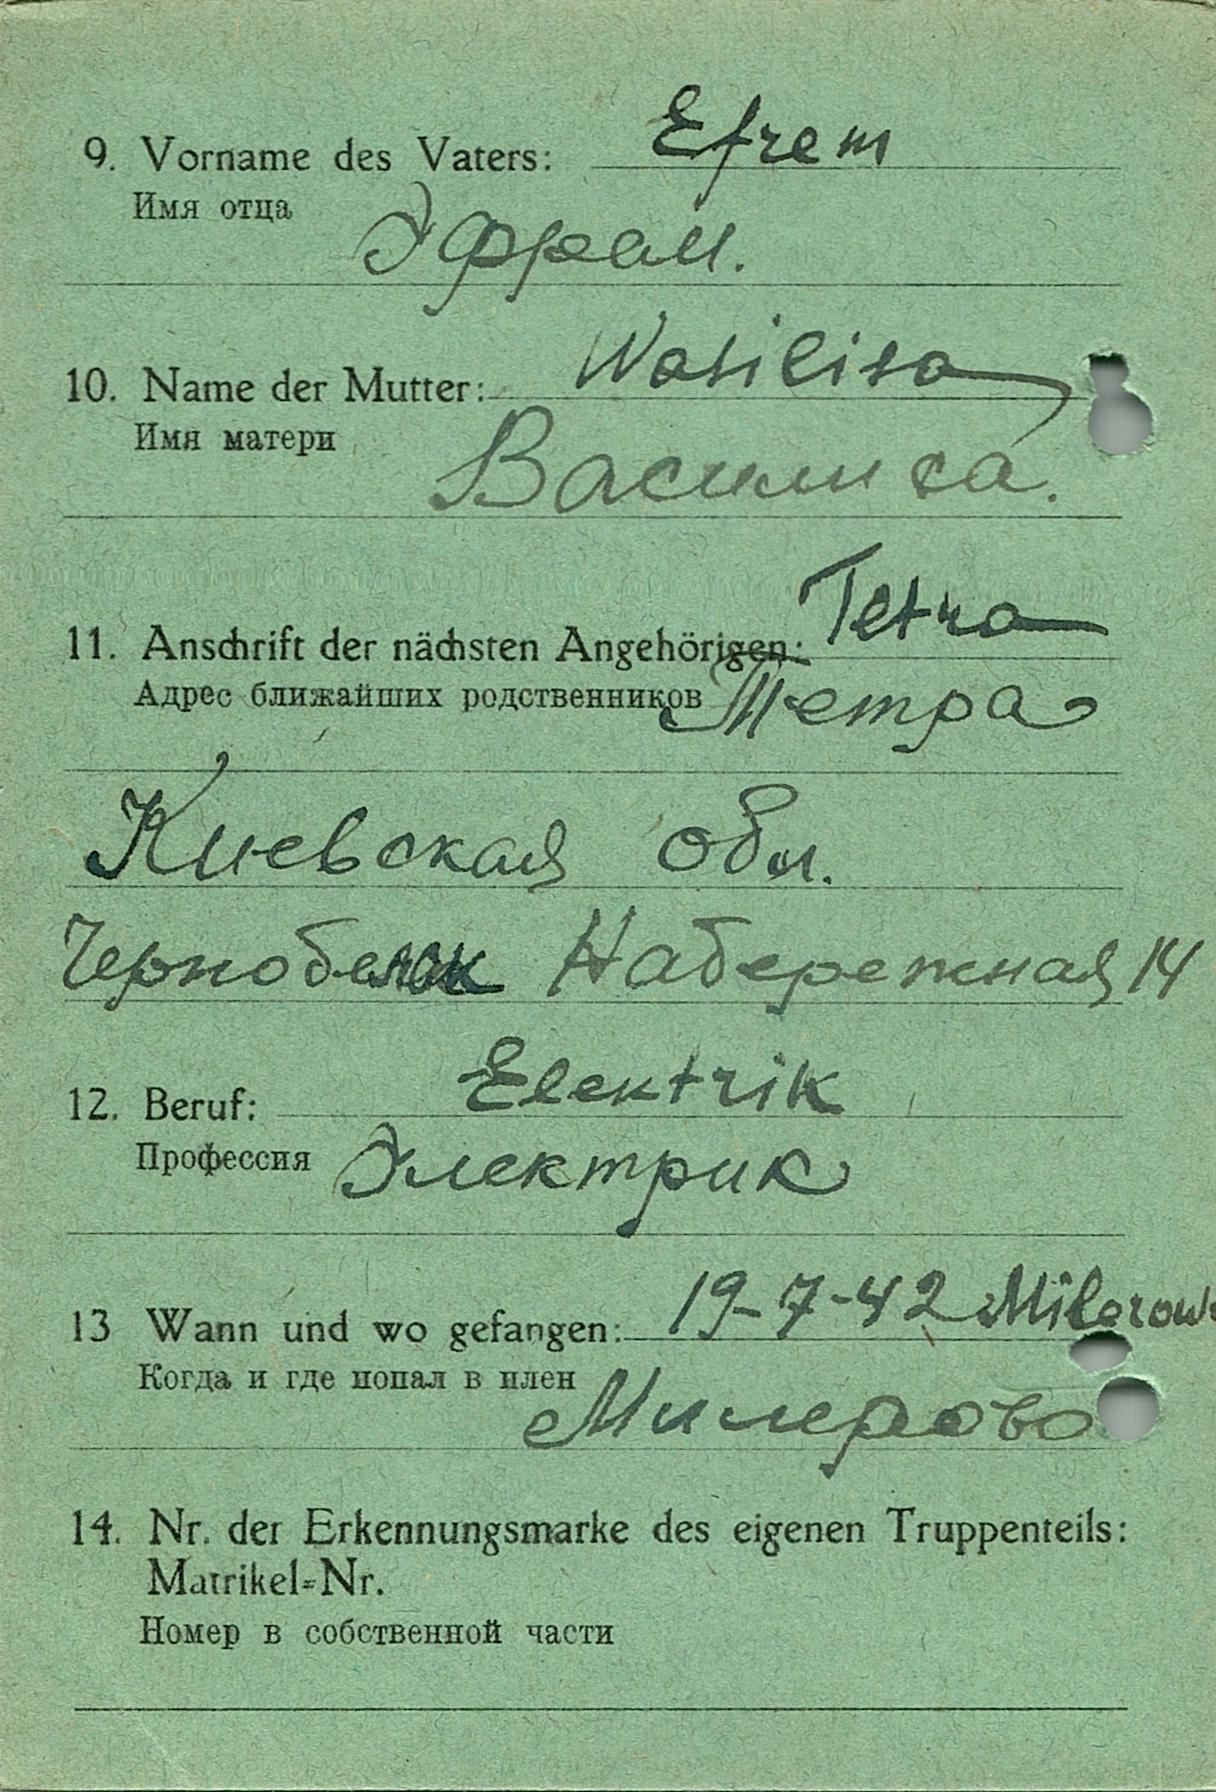 9. Vorname des Vaters: Efrem
Имя отца
Эфрем.
10. Name der Mutter: Wasilisa
Имя матери
Василиса.
11. Anschrift der nächsten Angehörigen: Tetra
Адрес ближайших родственников Тетра
Киевская обл.
Набережная 14
12. Beruf: Elektrik
Профессия Электрик
13 Wann und wo gefangen: 19-7-42 Milerowo
Когда и где попал в плен
Милерово
14. Nr. der Erkennungsmarke des eigenen Truppenteils:
Matrikel-Nr.
Номер в собственной части